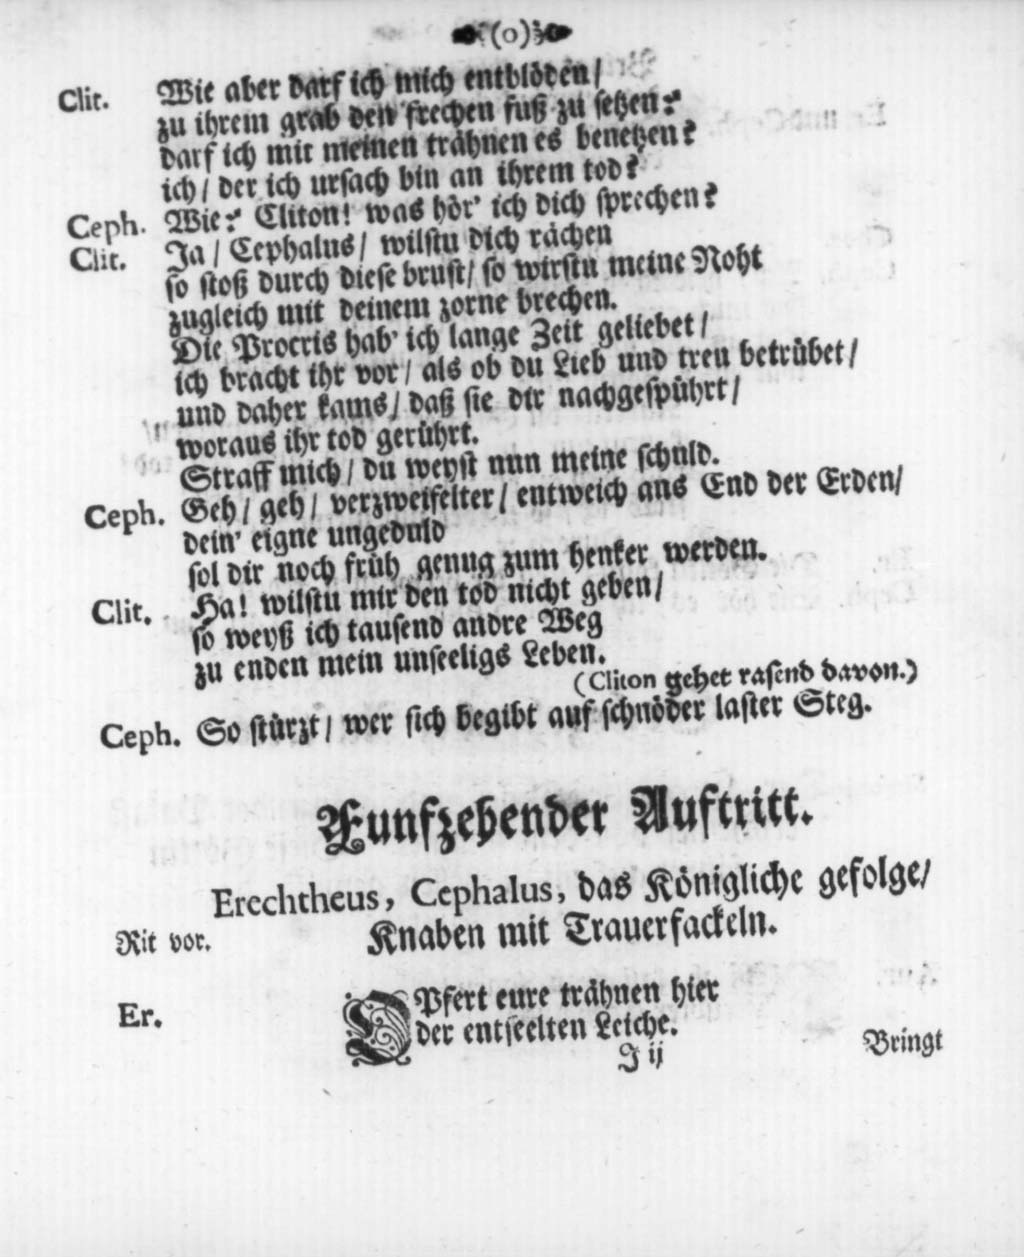 (o)
Clit. Wie aber darf ich mich entblöden/
zu ihrem grab den frechen fuß zu setzen?
darf ich mit meinen trähnen es benetzen?
ich/ der ich ursach bin an ihrem tod?
Ceph. Wie? Cliton! was hör' ich dich sprechen?
Clit. Ja/ Cephalus/ wilstu dich rächen
so stoß durch diese brust/ so wirstu meine Noht
zugleich mit deinem zorne brechen.
Die Procris hab' ich lange Zeit geliebet/
ich bracht ihr vor/ als ob du Lieb und treu betrübet/
und daher kams/ daß sie dir nachgespührt/
woraus ihr tod gerührt.
Straff mich/ du weyst nun meine schuld.
Ceph. Geh/ geh/ verzweifelter/ entweich ans End der Erden/
dein' eigne ungeduld
sol dir noch früh genug zum henker werden.
Clit. Ha! wilstu mir den tod nicht geben/
so weyß ich tausend andre Weg
zu enden mein unseeligs Leben.
(Cliton gehet rasend davon.)
Ceph. So stürzt/ wer sich begibt auf schnöder laster Steg.
Funfzehender Auftritt.
Erechtheus, Cephalus, das Königliche gefolge/
Knaben mit Trauerfackeln.
Rit vor.
Er. OPfert eure trähnen hier
der entseelten Leiche.
J ij Bringt